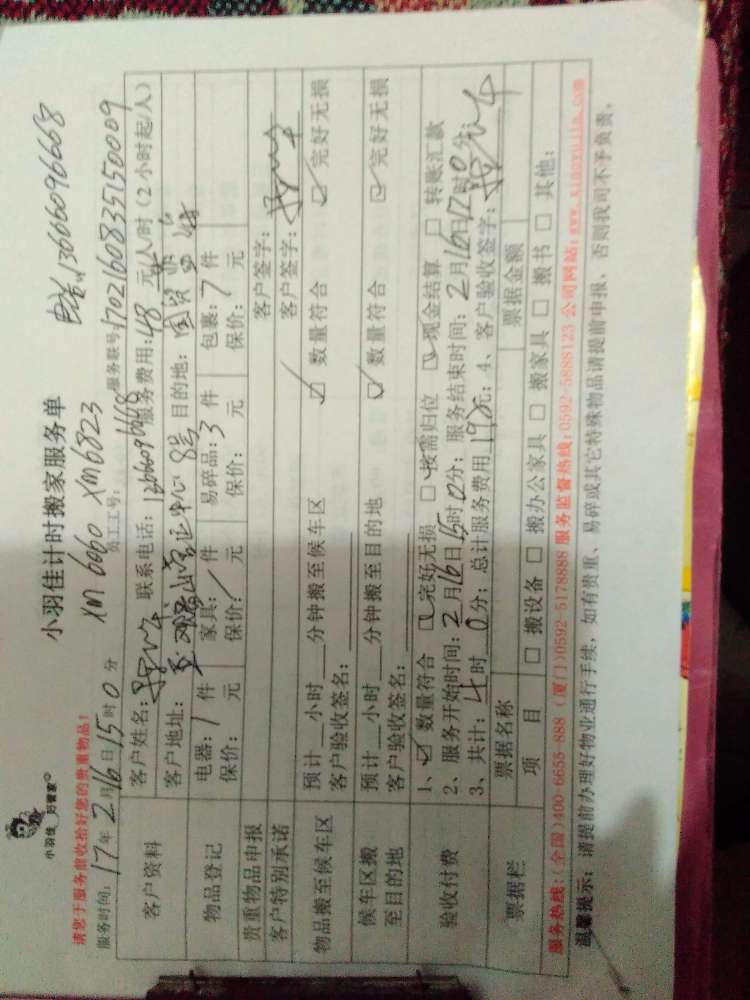 小羽佳 好管家
小羽佳计时搬家服务单
13666096668
请您于服务前收拾好您的贵重物品！
XM6060 XM6823
服务时间：17年2月16日15时0分
员工工号：
服务联号：1702160835150009
客户资料
客户姓名： 联系电话：13666096668 服务费用：48元/人/时（2小时起/人）
客户地址： 营运中心8号 目的地：国贸
物品登记
电器：1件 家具：/件 易碎品：3件 包裹：7件
保价： 元 保价：/元 保价： 元 保价：7元
贵重物品申报
客户签字：
客户特别承诺
客户签字：
物品搬至候车区
预计 小时 分钟搬至候车区 ☑ 数量符合 ☑ 完好无损
客户验收签名：
候车区搬至目的地
预计 小时 分钟搬至目的地 ☑ 数量符合 ☑ 完好无损
客户验收签名：
验收付费
1、☑ 数量符合 ☑ 完好无损 ☑ 按需归位 ☑ 现金结算 □ 转账汇款
2、服务开始时间：2月16日15时0分；服务结束时间：2月16日17时0分；
3、共计：4时0分；总计服务费用192元；4、客户验收签字：
票据栏
票据名称 票据金额
项目 □ 搬设备 □ 搬办公家具 □ 搬家具 □ 搬书 □ 其他：
服务热线：(全国)400-6655-888 (厦门)0592-5178888 服务监督热线：0592-5888123 公司网站：www.xiaoyujia.com
温馨提示：请提前办理好物业通行手续，如有贵重、易碎或其它特殊物品请提前申报，否则我司不予负责。